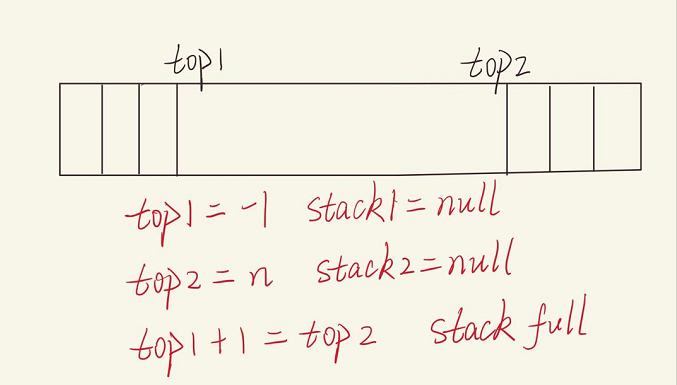 top1 top2
top1 = -1 stack1 = null
top2 = n stack2 = null
top1 + 1 = top2 stack full